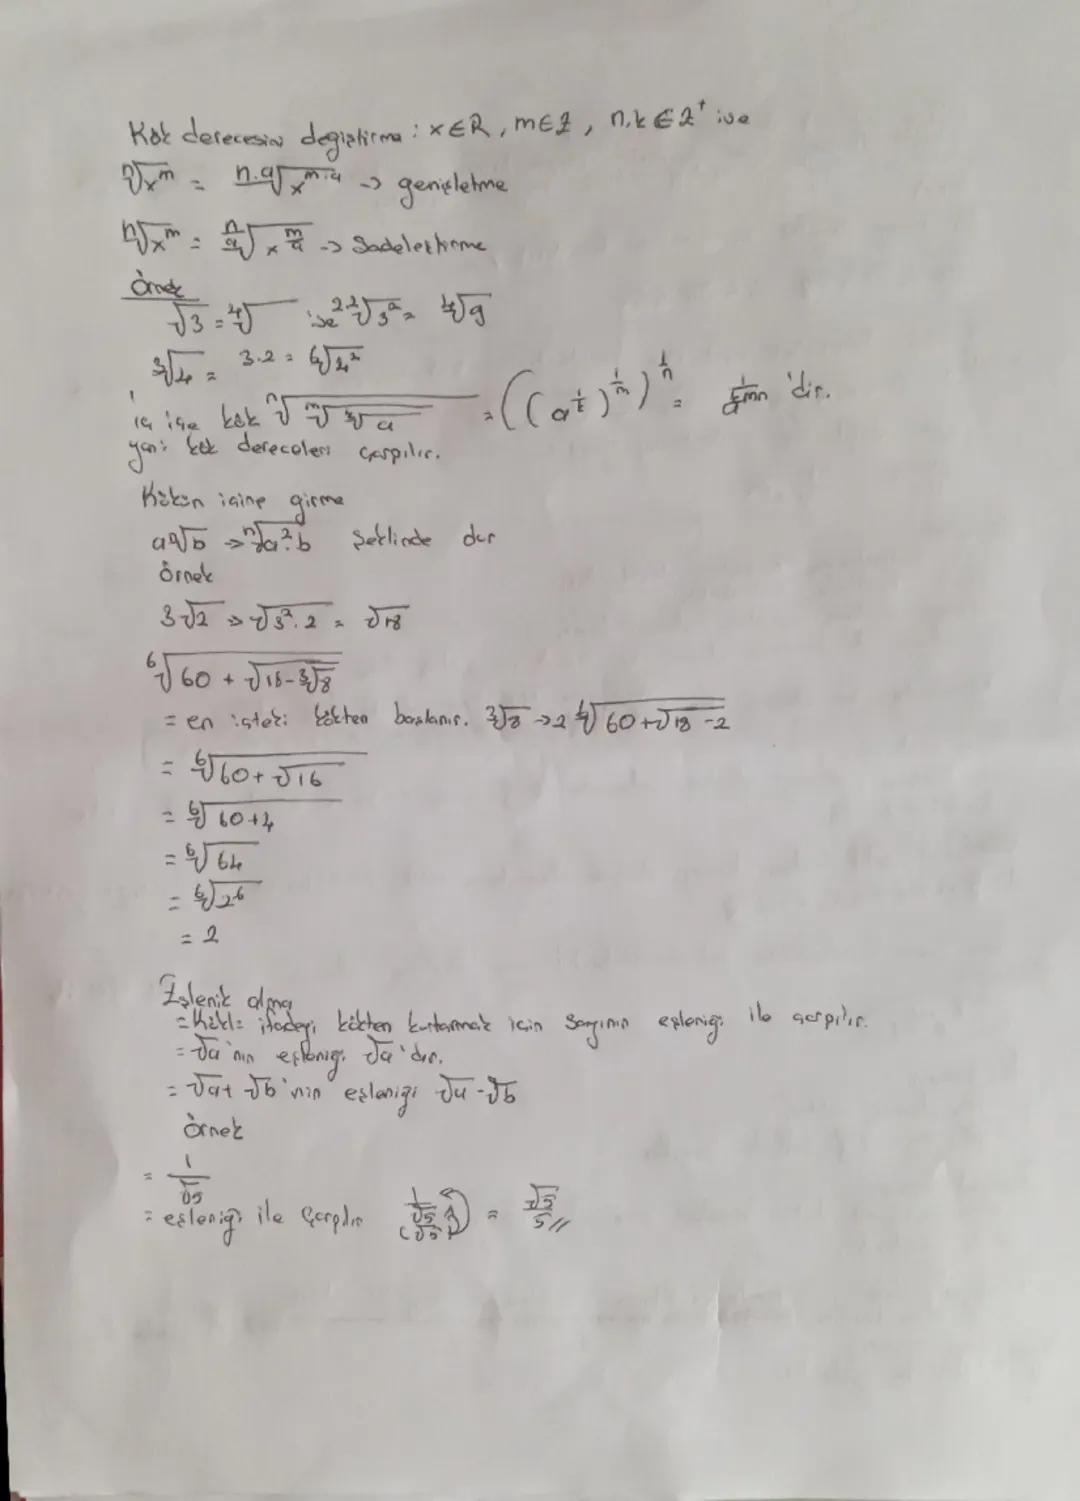 Kök derecesini değiştirme : x∈R, m∈Z, n,k∈Z⁺ ise
ⁿ√x^m = ^(n.a)√x^(m.a) -> genişletme
ⁿ√x^m = ^(n/a)√x^(m/a) -> Sadeleştirme
Örnek
√3 = ⁴√ ise ^(2.2)√3² = ⁴√9
³√4 = 3.2 = ⁶√4²
iç içe kök ⁿ√ᵐ√ᵏ√a = ((a^(1/k))^(1/m))^(1/n) = 'dir.
yani kök dereceleri çarpılır.
Kökün içine girme
aⁿ√b => ⁿ√a².b şeklinde dur
Örnek
3√2 => √3².2 = √18
⁶√60 + √18-³√8
= en içteki kökten başlanır. ³√8 -> 2 ⁶√60+√18-2
= ⁶√60+√16
= ⁶√60+4
= ⁶√64
= ⁶√2⁶
= 2
Eşlenik alma
= Köklü ifadeyi kökten kurtarmak için sayının eşleniği ile çarpılır.
= √a'nın eşleniği √a'dır.
= √a+√b'nin eşleniği √a-√b
Örnek
= 1/√5
= eşleniği ile çarpılır 1/√5 (√5) = √5/5 //